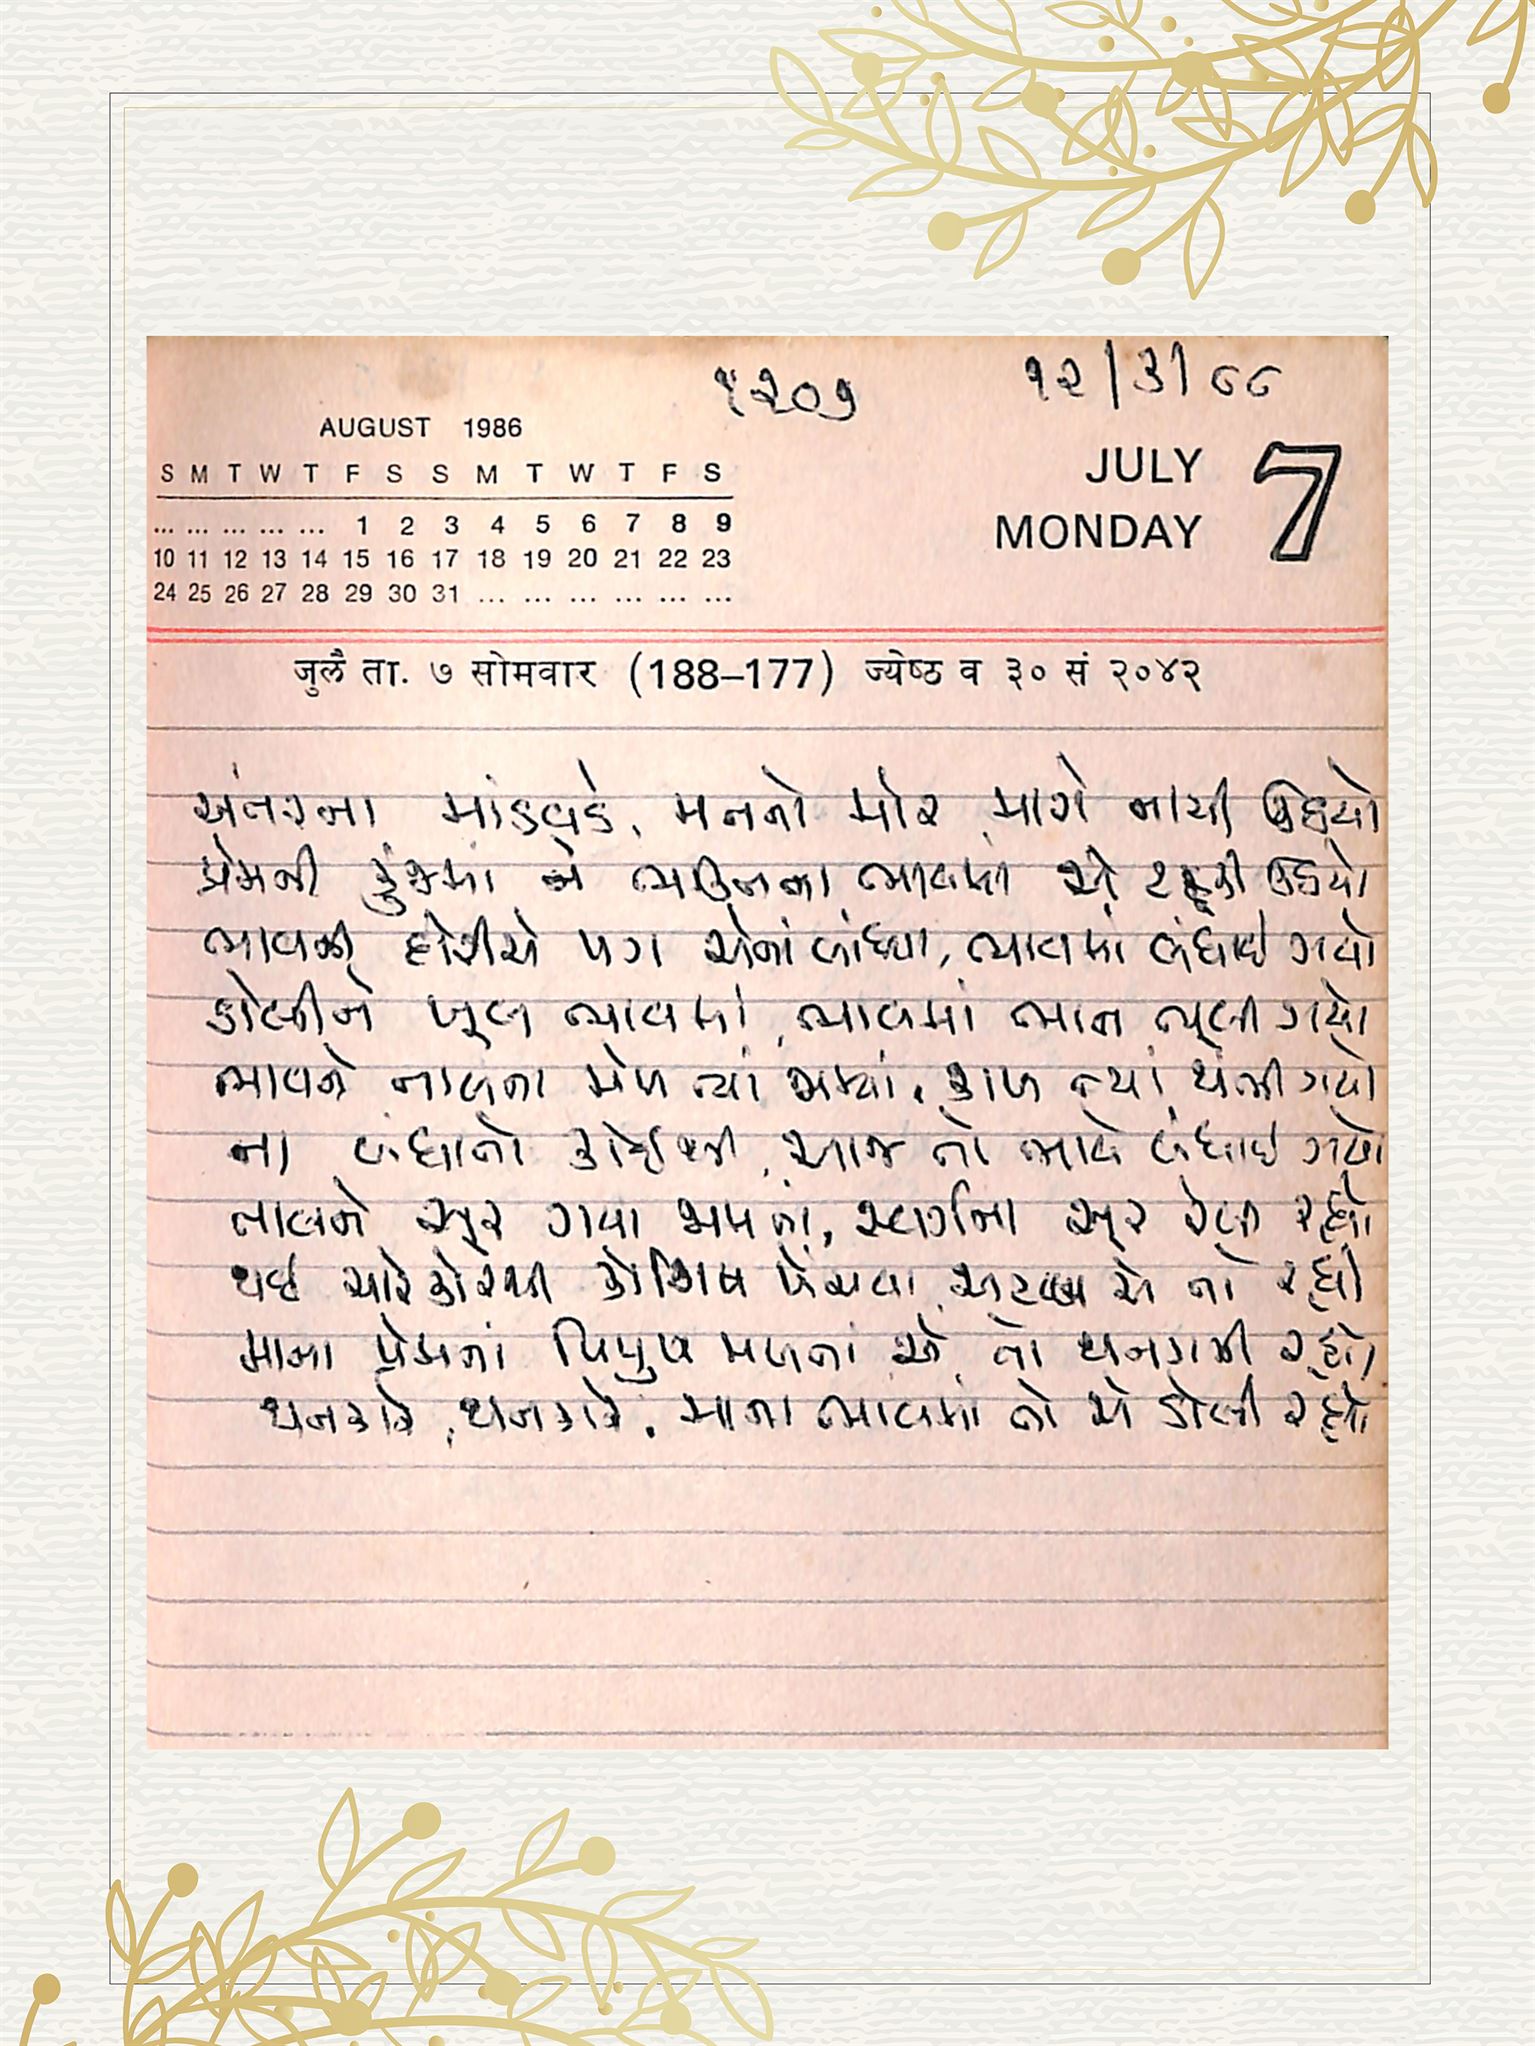 ૧૨૦૭
૧૨/3/૮૮
AUGUST 1986
S M T W T F S S M T W T F S
... ... ... ... ... 1 2 3 4 5 6 7 8 9
10 11 12 13 14 15 16 17 18 19 20 21 22 23
24 25 26 27 28 29 30 31 ... ... ... ... ... ...
JULY
MONDAY
7
जुलै ता. ७ सोमवार (188–177) ज्येष्ठ व ३० सं २०४२
અંતરના માંડવડે, મનનો મોર માગે નાચી ઊઠયો
પ્રેમની કુંજમાં ને ભાવમાં એ ટહૂકી ઊઠયો
ભાવની દોરીએ પગ એનાં બાંધ્યા, ભાવમાં બંધાઈ ગયો
ડોલીને ખૂબ ભાવમાં, ભાવમાં ભાન ભૂલી ગયો
ભાવને તાલના મેળ ત્યાં જામ્યાં, કાળ ત્યાં થંભી ગયો
ના બંધાતો કોઈથી, આજ તો ભાવે બંધાઈ ગયો
તાલને સૂર ગયા જામતાં, સ્વર્ગના સૂર રેલી રહ્યો
થઈ ચારેકોરથી કોશિષ ખેંચવા, અટલ એ તો રહ્યો
માના પ્રેમનાં પિયુષ મળતાં એ તો થનગની રહ્યો
થનકારે, થનકારે, માના ભાવમાં તો એ ડોલી રહ્યો